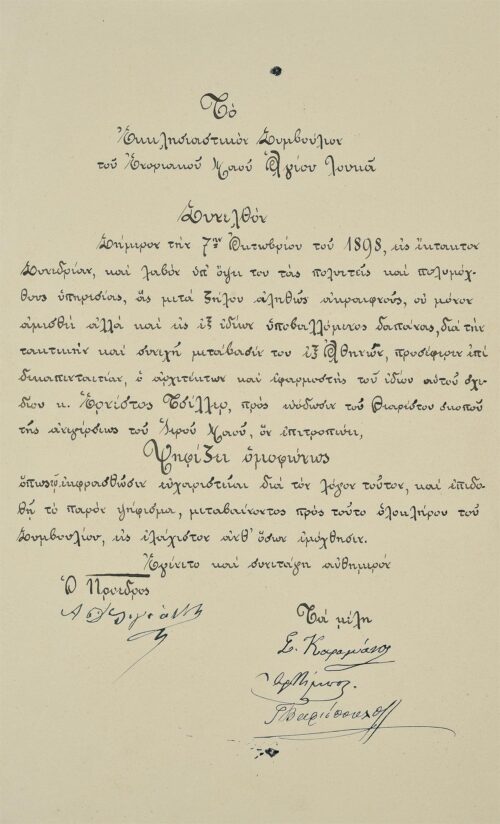 Τὸ
Ἐκκλησιαστικὸν Συμβούλιον
τοῦ Ἐνοριακοῦ Ναοῦ Ἁγίου Λουκᾶ
Συνελθὸν
Σήμερον τὴν 7ην Ὀκτωβρίου τοῦ 1898, εἰς ἔκτακτον
Συνεδρίαν, καὶ λαβὸν ὑπ' ὄψει του τὰς πολυετεῖς καὶ πολυμόχ-
θους ὑπηρεσίας, ἃς μετὰ ζήλου ἀληθῶς ἀκραιφνοῦς, οὐ μόνον
ἀμισθεὶ ἀλλὰ καὶ εἰς ἐξ ἰδίων ὑποβαλλόμενος δαπάνας, διὰ τὴν
τακτικὴν καὶ συνεχῆ μετάβασίν του ἐξ Ἀθηνῶν, προσέφερεν ἐπὶ
δεκαπενταετίαν, ὁ ἀρχιτέκτων καὶ ἐφαρμοστὴς τοῦ ἰδίου αὐτοῦ σχε-
δίου κ. Ἐρνέστος Τσίλλερ, πρὸς εὐόδωσιν τοῦ θεαρέστου σκοποῦ
τῆς ἀνεγέρσεως τοῦ Ἱεροῦ Ναοῦ, ὃν ἐπιτροπεύει,
Ψηφίζει ὁμοφώνως
ὅπως ἐκφρασθῶσιν εὐχαριστίαι διὰ τὸν λόγον τοῦτον, καὶ ἐπιδο-
θῇ τὸ παρὸν ψήφισμα, μεταβαίνοντος πρὸς τοῦτο ὁλοκλήρου τοῦ
Συμβουλίου, εἰς ἐλάχιστον ἀνθ' ὅσων ἐμόχθησεν.
Ἐγένετο καὶ συνετάγη αὐθημερόν
Ὁ Πρόεδρος
Τὰ μέλη
Σ. Καραμάνος